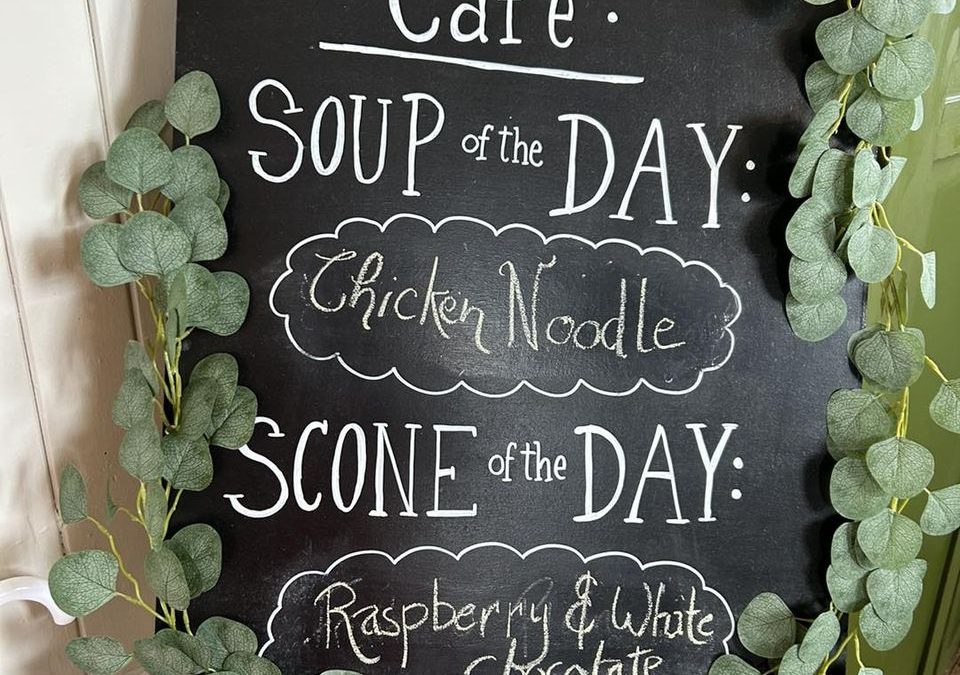 Café.
SOUP of the DAY:
Chicken Noodle
SCONE of the DAY:
Raspberry & White
chocolate